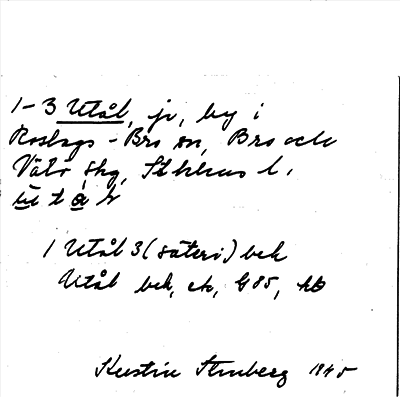 1-3 Utål, jr, by i
Roslags-Bro sn, Bro och
Vätö skg, Sthlms l.
ut a
1 Utål 3 (säteri) bek
Utål bek, ek, G85, hb
Kerstin Stenberg 1945